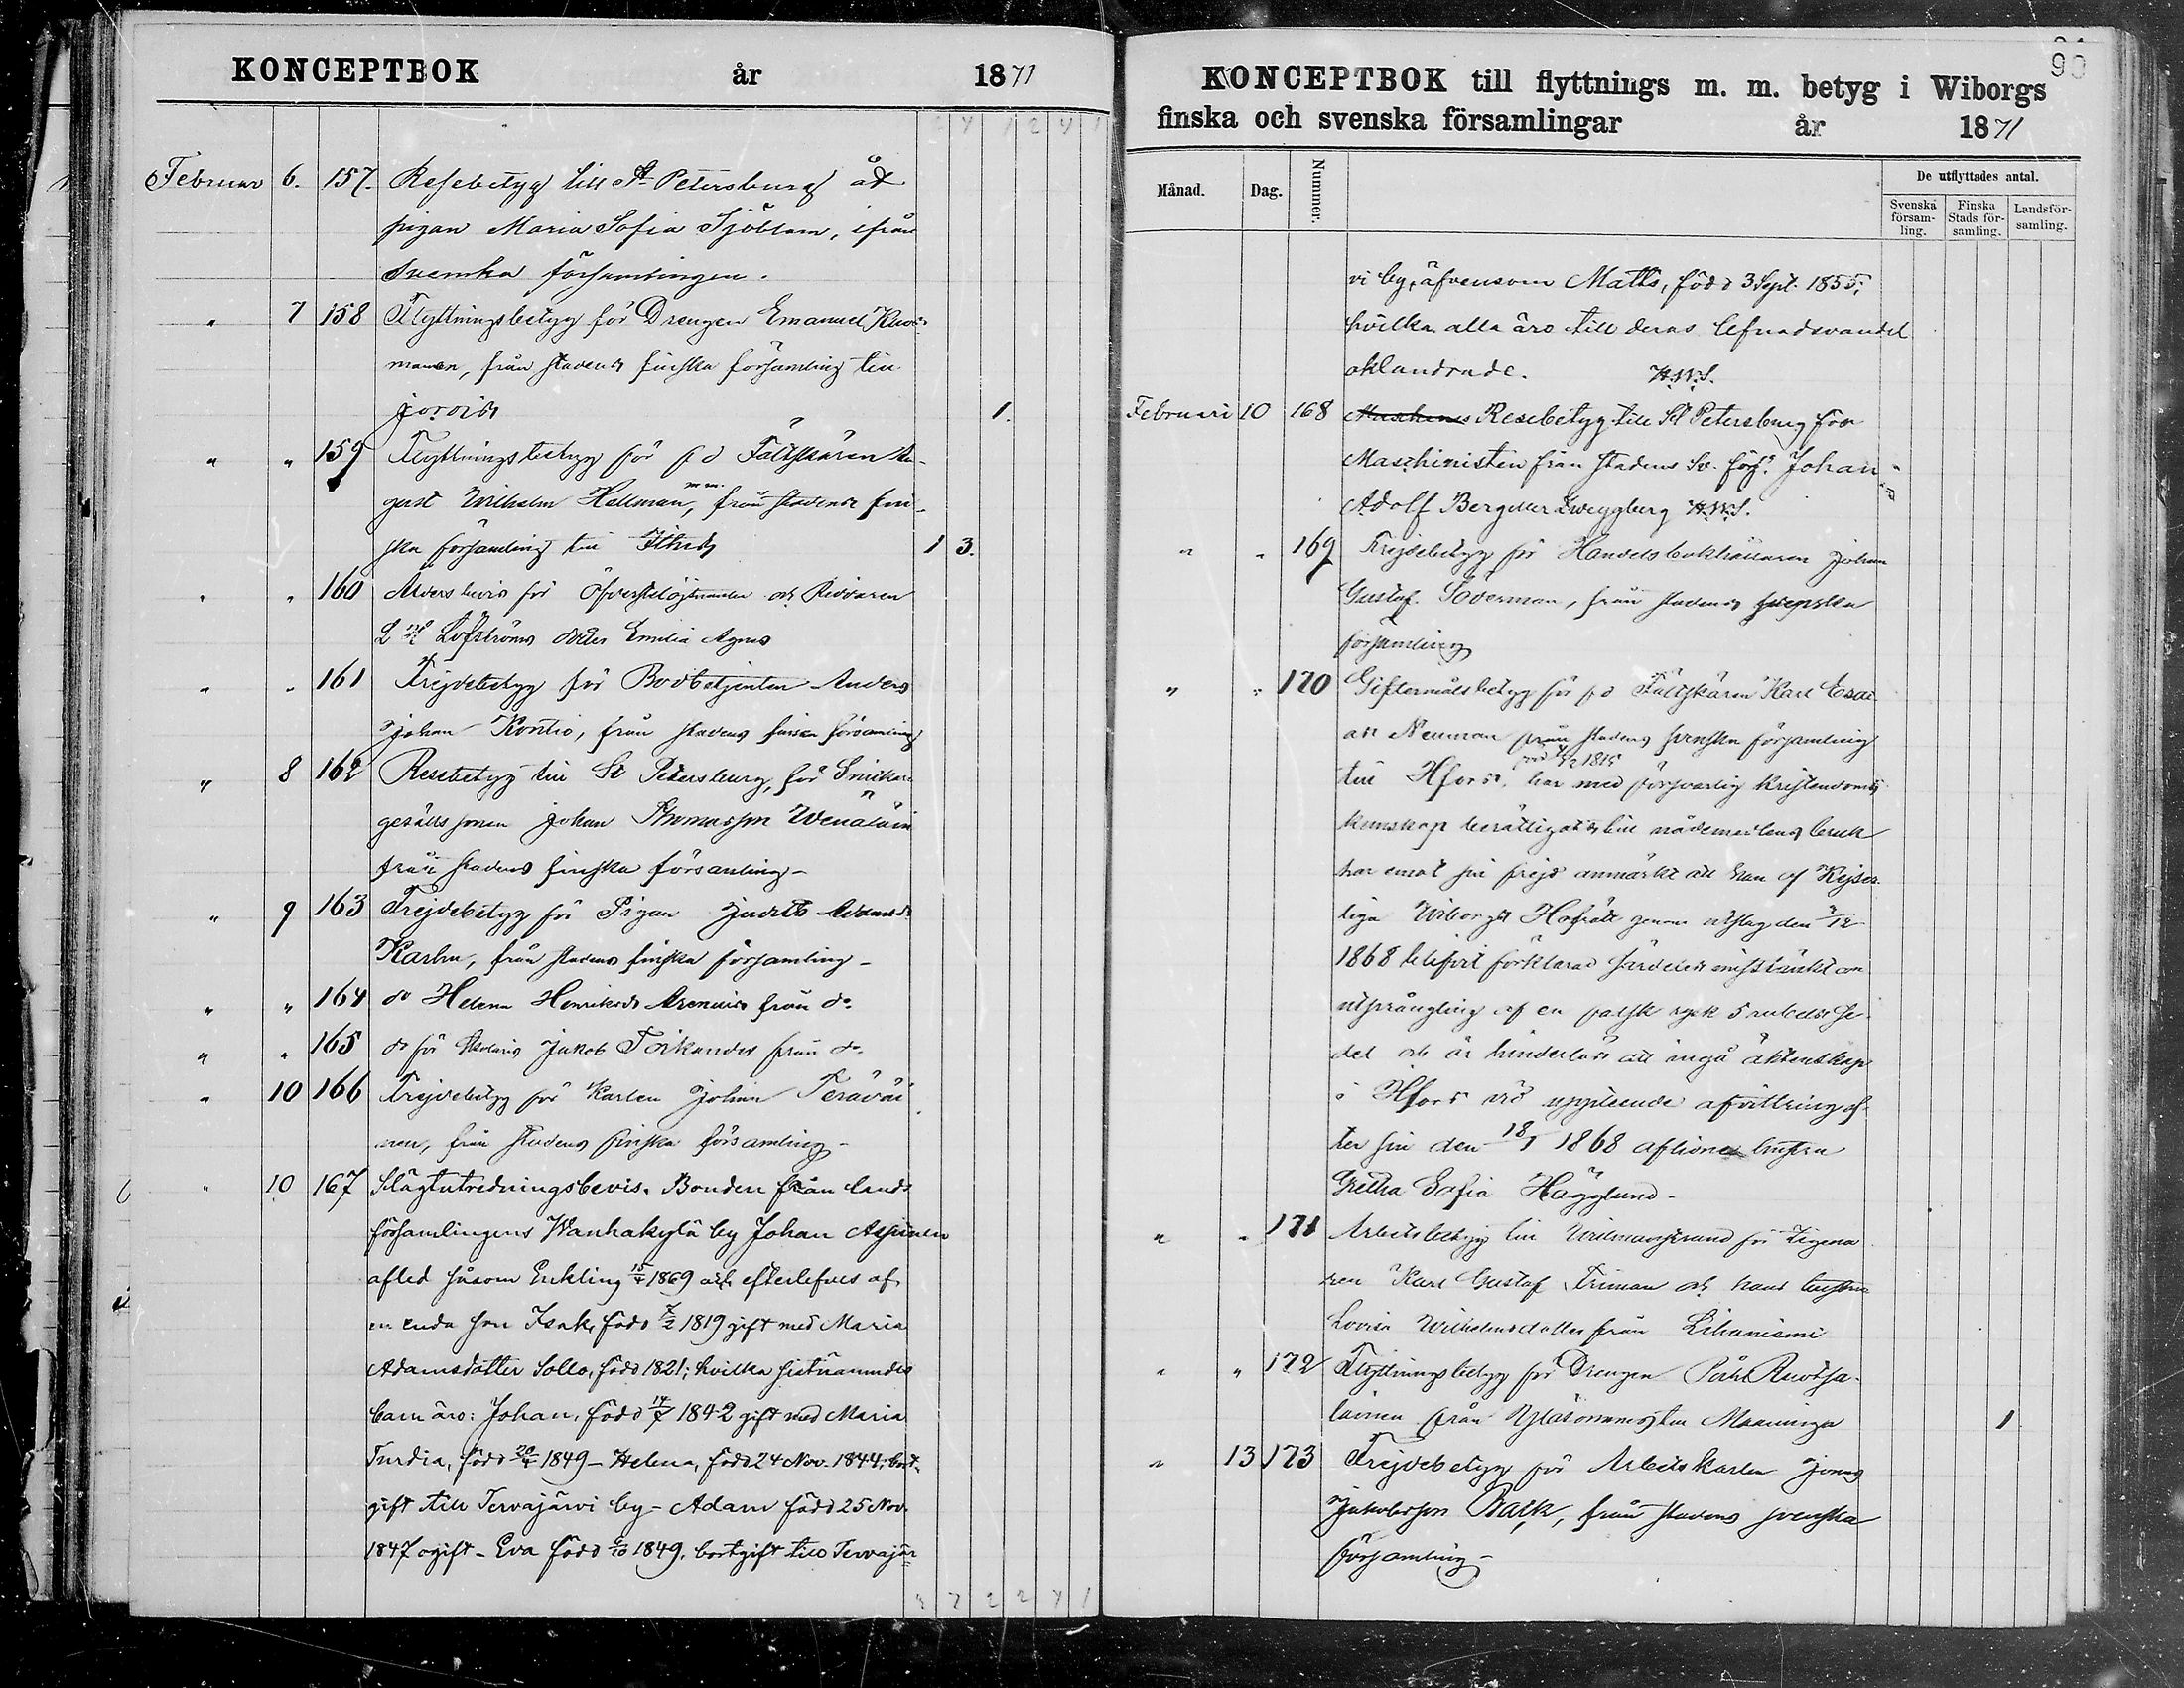 KONCEPTBOK år 1871
Februar 6. 157. Resebetyg till St Petersburg åt
pigan Maria Sofia Sjöblom, ifrån
Svenska församlingen.
" 7 158 Flyttningsbetyg för Drengen Emanuel
manen, från stadens finska församling till
Jorois 1.
" " 159 Flyttningsbetyg för fd Fältskären Au-
gust Wilhelm Hellman, från stadens fin-
ska församling till 1 3.
" " 160 Åldersbevis för Öfverstelöjtnanten och Riddaren
Löfströms dotter Emilia Agnes
" " 161 Frejdebetyg för Bodbetjenten Anders
Johan Kontio, från stadens finska församling
" 8 162 Resebetyg till St Petersburg, för Snickare
gesällssonen Johan Thomasson Wenäläin
från stadens finska församling -
" 9 163 Frejdebetyg för Pigan Judith Adamsdr
Karhu, från stadens finska församling -
" " 164 do Helena Henriksdr Arenius från do
" " 165 do för Jakob från do
" 10 166 Frejdebetyg för Karlen Johan Teräväi
nen, från stadens finska församling -
" 10 167 Slägtutredningsbevis. Bonden från lands
församlingens Wanhakylä by Johan
afled såsom Enkling 15/4 1869 och efterlefves af
en enda son Isak, född 7/2 1819 gift med Maria
Adamsdotter Sollo, född 1821; hvilka sistnämndes
barn äro: Johan, född 14/7 1842 gift med Maria
Turdia, född 1849 - Helena, född 24 Nov. 1844, bort-
gift till Tervajärvi by - Adam född 25 Nov.
1847 ogift - Eva född 1849, bortgift till Tervajär-
90
KONCEPTBOK till flyttnings m. m. betyg i Wiborgs
finska och svenska församlingar år 1871
Månad. Dag. Nummer. De utflyttades antal.
Svenska församling. Finska Stads församling. Landsförsamling.
vi by, äfvensom Matts, född 3 Sept. 1855;
hvilka alla äro till deras lefnadsvandel
oklandrade. H.W.S.
Februari 10 168 Resebetyg till St Petersburg för
Maschinisten från stadens Sv. förs. Johan
Adolf Zweygberg H.W.S.
" " 169 Frejdebetyg för Handelsbokhållaren Johan
Gustaf Söderman, från stadens svenska
församling
" " 170 Giftermålsbetyg för fd Fältskären Karl
Neuman från stadens svenska församling
född 1815
till Hfors, har med försvarlig kristendoms
kunskap berättigats till nådemedlens bruk
har emot sin frejd anmärkt att han af Kejser-
liga Wiborgs Hofrätt genom utslag den
1868 blifvit förklarad särdeles misstänkt om
utprångling af en falsk rysk 5 rubels se-
del och är hinderlös att ingå äktenskap
i Hfors vid uppteende afvittring ef-
ter sin den 18/1 1868 aflidna hustru
Gretha Sofia Hägglund -
" " 171 Arbetsbetyg till Wilmanstrand för
ren Karl Gustaf Friman och hans hustru
Lovisa Wilhelmsdotter från Lihaniemi
" " 172 Flyttningsbetyg för Drengen Pehr Ruotsa-
lainen från till Maaninga 1
" 13 173 Frejdebetyg för Arbetskarlen Jonas
Jakobsson Back, från stadens svenska
församling -